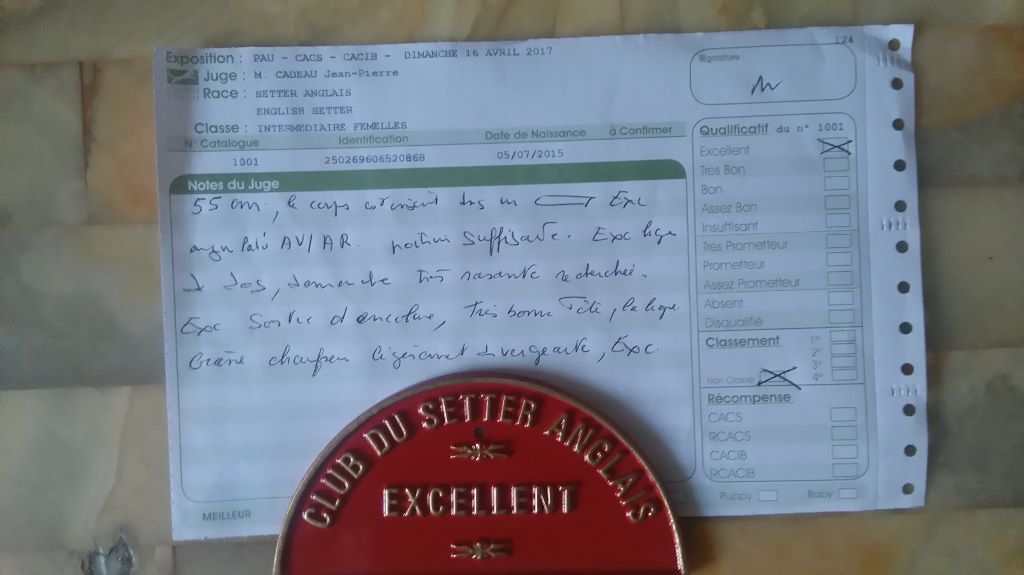 124
Exposition : PAU - CACS - CACIB - DIMANCHE 16 AVRIL 2017
Juge : M. CADEAU Jean-Pierre
Race : SETTER ANGLAIS
ENGLISH SETTER
Classe : INTERMEDIAIRE FEMELLES
N° Catalogue Identification Date de Naissance à Confirmer
1001 250269606520868 05/07/2015
Notes du Juge
55 cm, le corps dans un Exc
AV/AR. poitrine suffisante. Exc ligne
de dos, démarche très rasante recherchée.
Exc Sortie d'encolure, très bonne Tête, la ligne
Crâne chanfrein légèrement divergeante, Exc.
MEILLEUR
Signature
Qualificatif du n° 1001
Excellent
Tres Bon
Bon
Assez Bon
Insuffisant
Tres Prometteur
Prometteur
Assez Prometteur
Absent
Disqualifié
Classement 1er
2e
3e
Non Classé 4e
Récompense
CACS
RCACS
CACIB
RCACIB
Puppy Baby
CLUB DU SETTER ANGLAIS
EXCELLENT